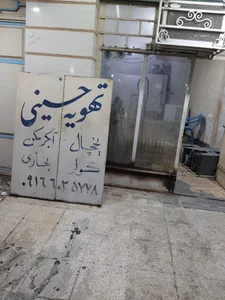 تهویه حسینی
یخچال آبگرمکن
کولر بخاری
۰۹۱۶۶۰۲۵۷۷۸